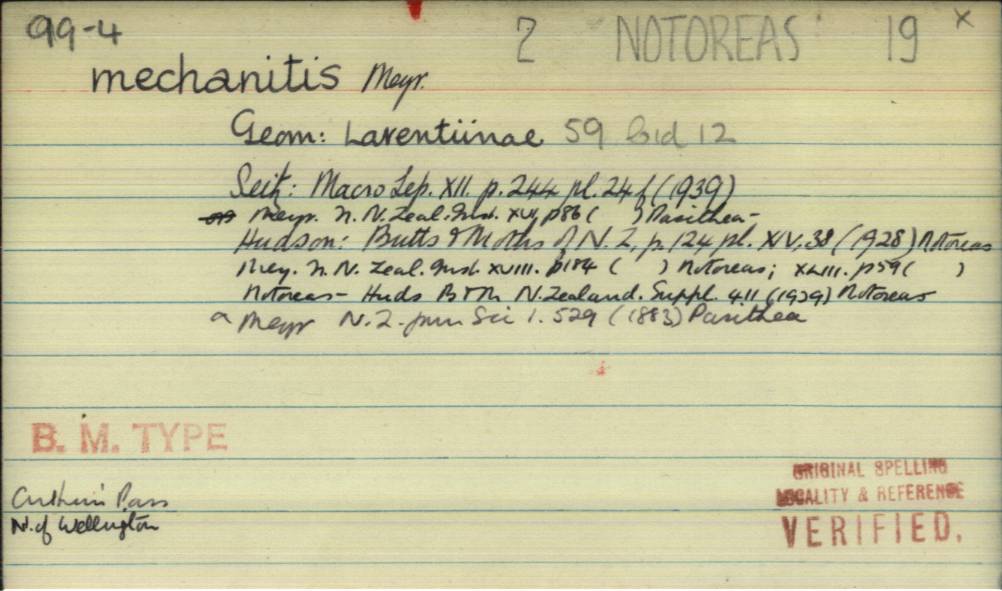 99-4 2 NOTOREAS 19 x
mechanitis Meyr.
Geom: Larentiinae 59 bid 12
Seitz: Macro Lep. XII. p. 244 pl. 24 f (1939)
Meyr. N. Zeal. Inst. XVI, p86 ( ) Pasithea-
Hudson: Butts & Moths of N. Z, p. 124 pl. XIV, 38 (1928) Notoreas
Mey. N. Zeal. Inst. XVIII. p184 ( ) Notoreas; XLIII. p59 ( )
Notoreas- Huds B & M N. Zealand. Suppl. 411 (1929) Notoreas
a Meyr N.Z. Jrn Sci 1. 529 (1883) Pasithea
B. M. TYPE
ORIGINAL SPELLING
LOCALITY & REFERENCE
VERIFIED.
Pass
N. of Wellington